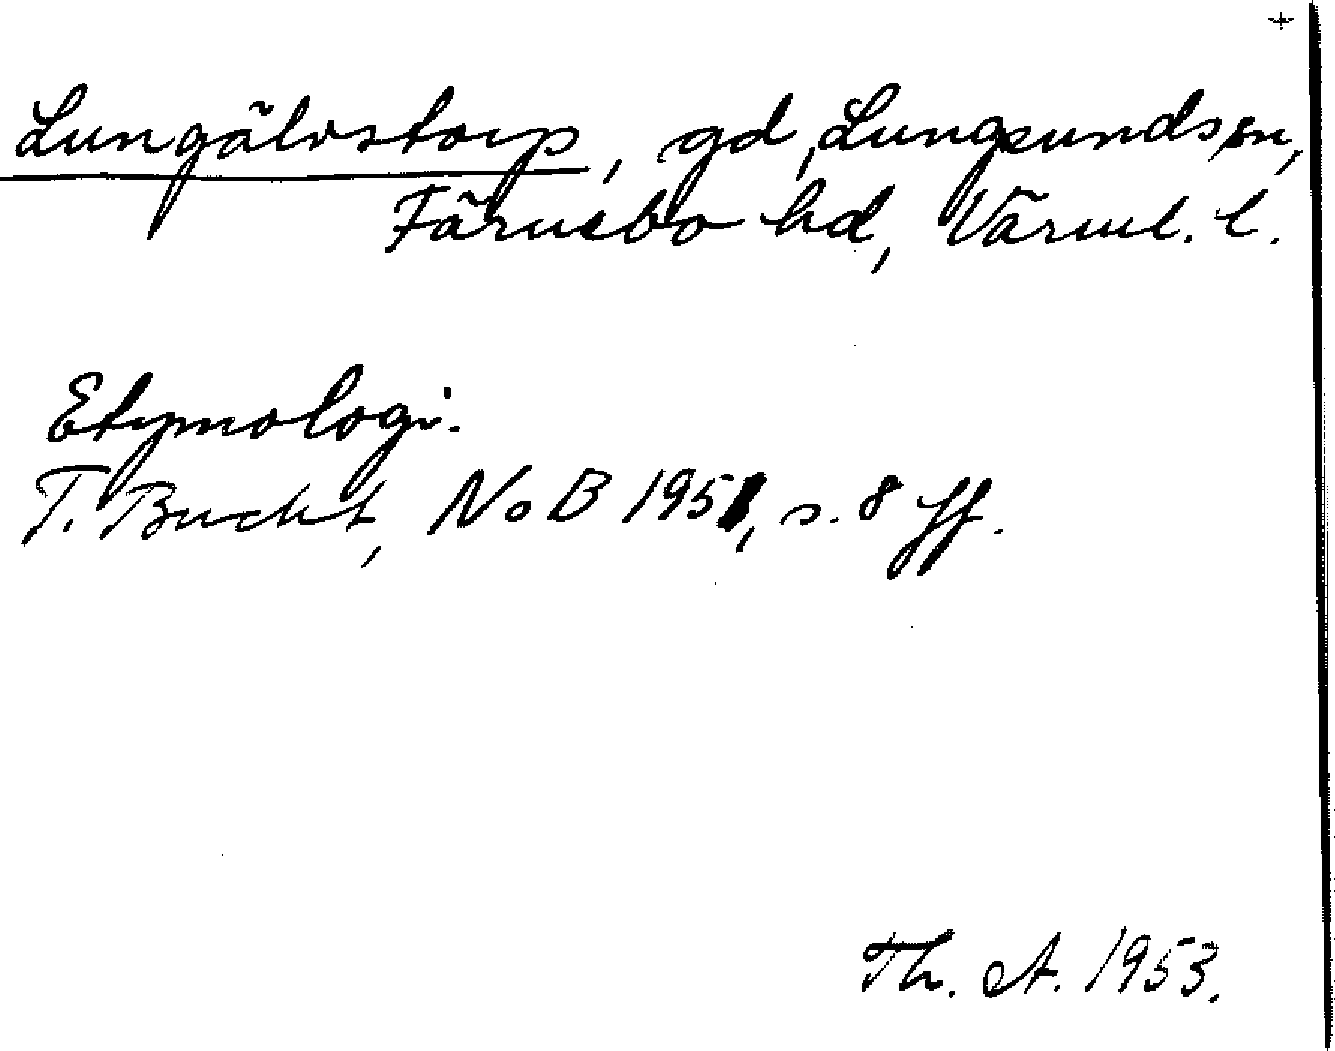 +
Lungälvstorp, gd, Lungsunds sn,
Färnebo hd, Värml. l.
Etymologi.
T. Bucht, NoB 1951, s. 8 ff.
Th. A. 1953.